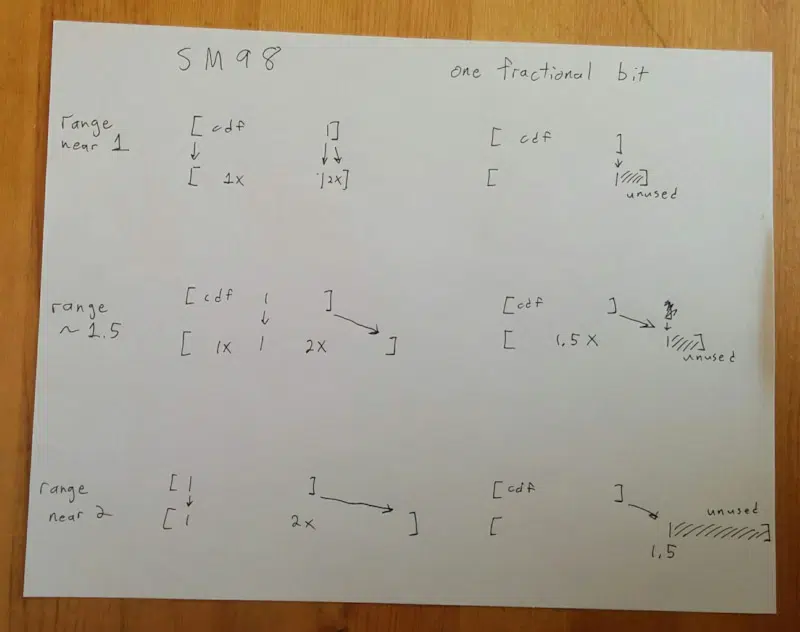 SM98
one fractional bit
range
near 1
[ cdf |]
[ 1x |2x]
[ cdf ]
[ | ]
unused
range
~ 1.5
[ cdf | ]
[ 1x | 2x ]
[ cdf ]
[ 1.5 x | ]
unused
range
near 2
[ | ]
[ | 2x ]
[ cdf ]
[ | ]
unused
1.5